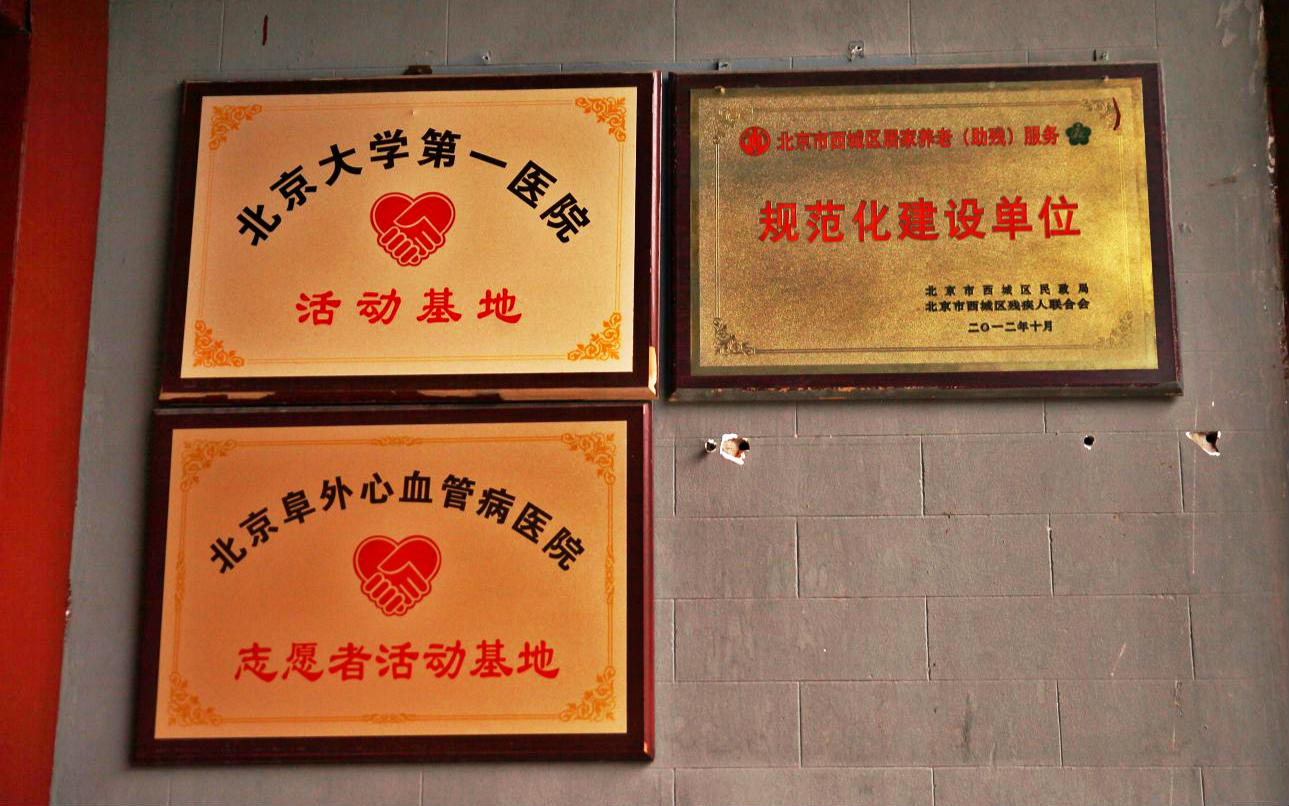 北京大学第一医院
活动基地
北京市西城区居家养老（助残）服务
规范化建设单位
北京市西城区民政局
北京市西城区残疾人联合会
二〇一二年十月
北京阜外心血管病医院
志愿者活动基地